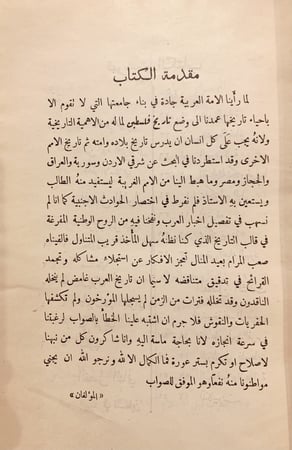 مقدمة الكتاب
لما رأينا الامة العربية جادة في بناء جامعتها التي لا تقوم الا
باحياء تاريخها عمدنا الى وضع تاريخ فلسطين لما له من الاهمية التاريخية
ولانه يجب على كل انسان ان يدرس تاريخ بلاده وامته ثم تاريخ الامم
الاخرى وقد استطردنا في البحث عن شرقي الاردن وسورية والعراق
والحجاز ومصر وما هبط الينا من الامم الغربية ليستفيد منه الطالب
ويستعين به الاستاذ فلم نفرط في اختصار الحوادث الاجنبية كما انا لم
نسهب في تفصيل اخبار العرب ونفخنا فيه من الروح الوطنية المفرغة
في قالب التاريخ الذي كنا نظنه سهل المأخذ قريب المتناول فالفيناه
صعب المرام بعيد المنال تعجز الافكار عن استجلاء مشاكله وتجمد
القرائح في تدقيق متناقضه لا سيما ان تاريخ العرب غامض لم ينخله
الناقدون وقد تتخلله فترات من الزمن لم يسجلها المؤرخون ولم تكشفها
الحفريات والنقوش فلا جرم ان اشتبه علينا الخطأ بالصواب لرغبتنا
في سرعة انجازه لانا بحاجة ماسة اليه وانا شاكرون كل من نبهنا
لاصلاح او تكرم بستر عورة فما الكمال الا لله ونرجو الله ان يجني
مواطنونا منه نفعاً وهو الموفق للصواب
«المؤلفان»